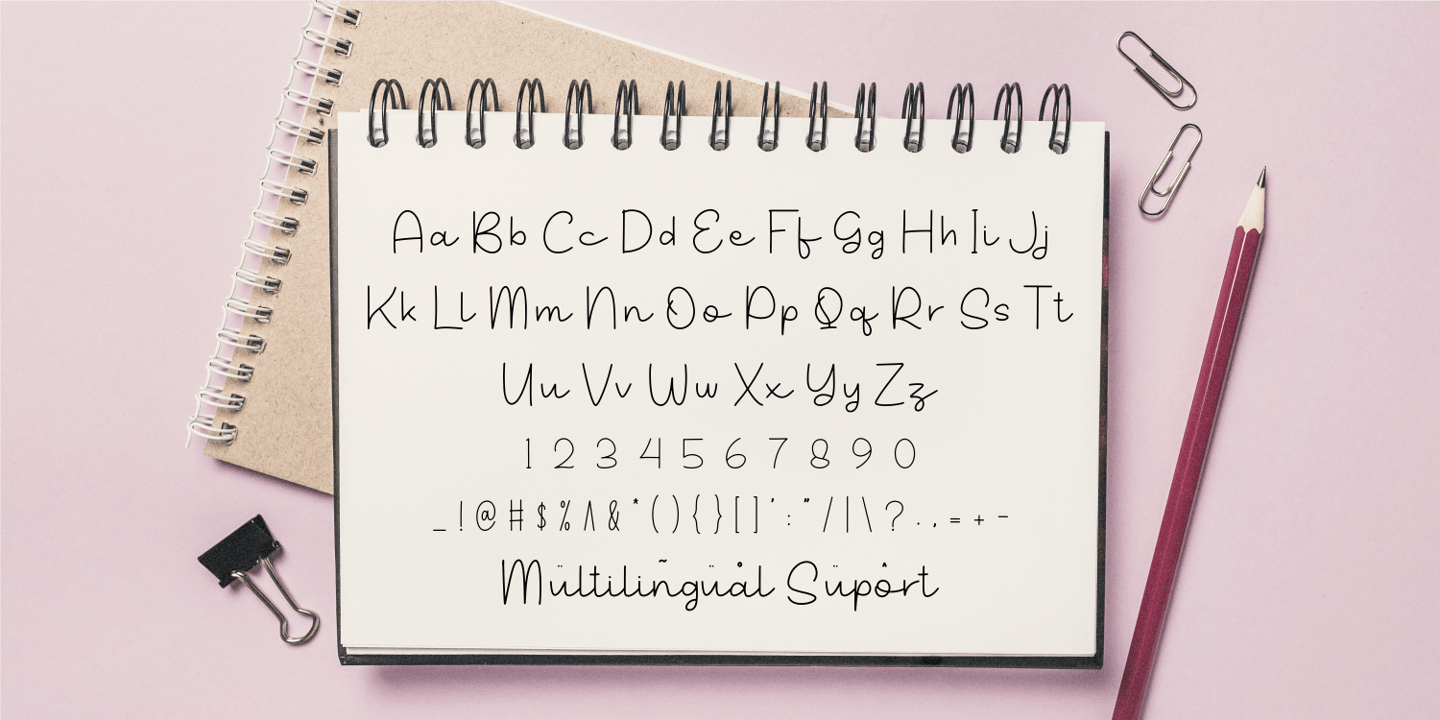 Aa Bb Cc Dd Ee Ff Gg Hh Ii Jj
Kk Ll Mm Nn Oo Pp Qq Rr Ss Tt
Uu Vv Ww Xx Yy Zz
1 2 3 4 5 6 7 8 9 0
_ ! @ # $ % ^ & * ( ) { } [ ] ' : " / | \ ? . , = + -
Mültiliñgüål Süpôrt